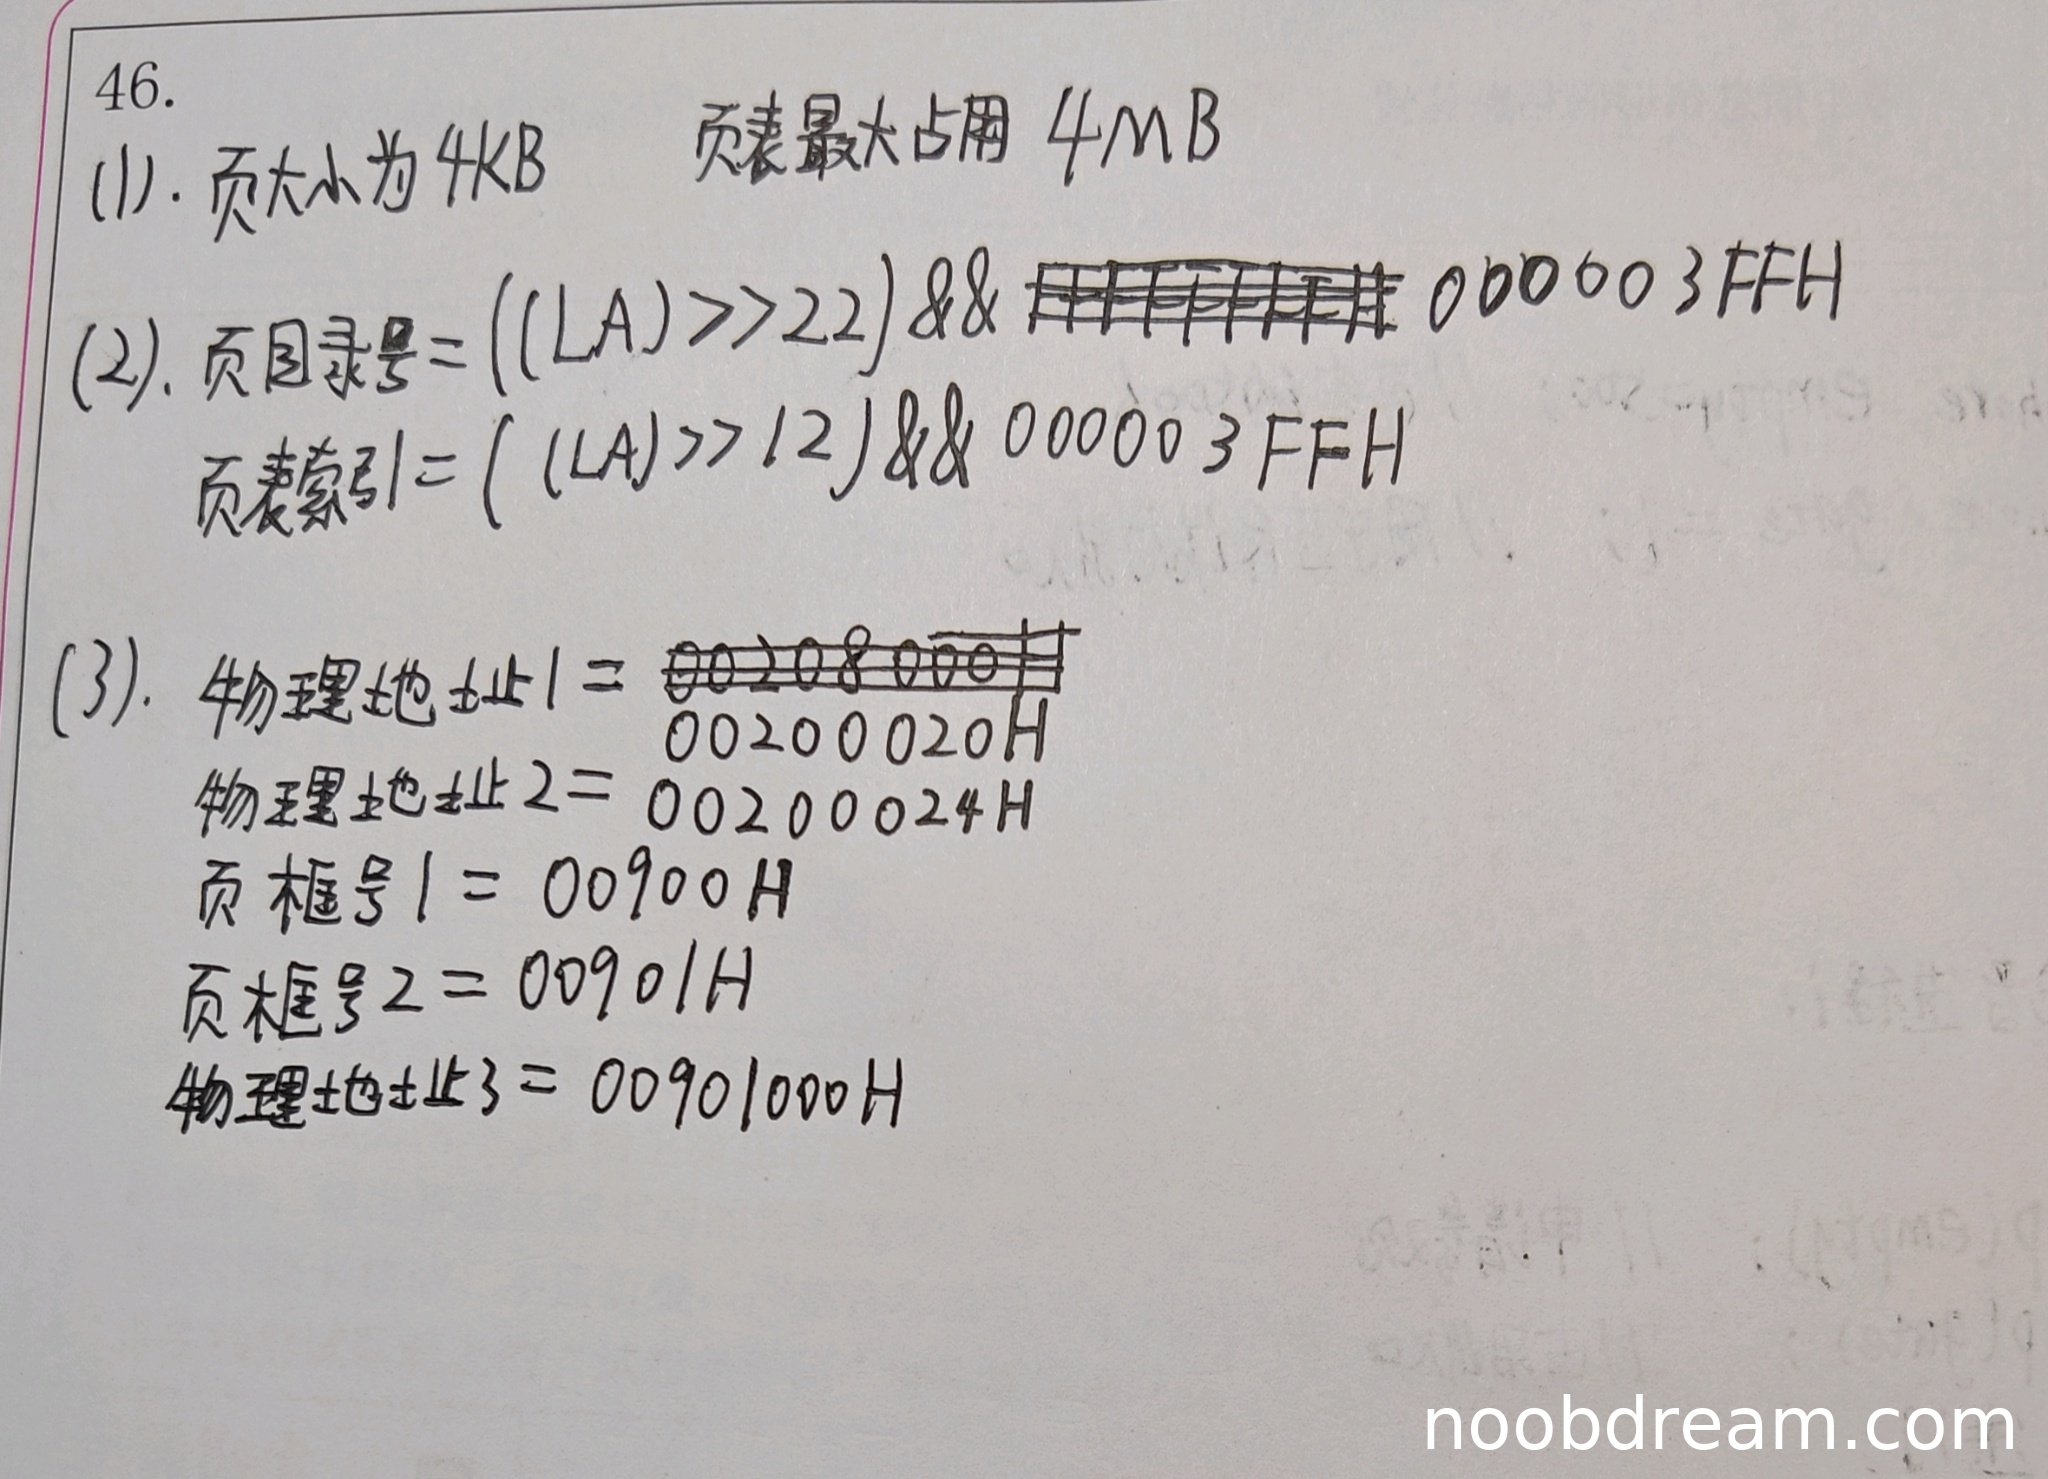 46.
(1). 页大小为4KB 页表最大占用 4MB
(2). 页目录号=((LA)>>22)&& 000003FFH
页表索引=((LA)>>12)&& 000003FFH
(3). 物理地址1= 00208000H
00200020H
物理地址2= 00200024H
页框号1= 00900H
页框号2= 00901H
物理地址3= 00901000H
noobdream.com